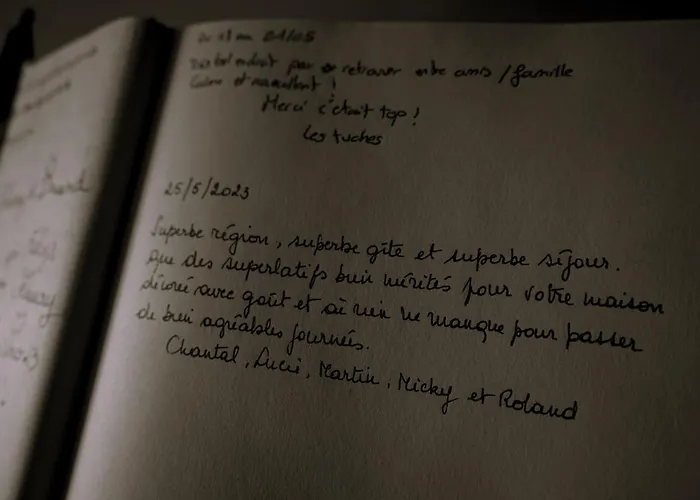 21/05
endroit pour se retrouver entre amis / famille
Calme et
Merci c'était top !
Les tuches
25/5/2023
Superbe région, superbe gîte et superbe séjour.
que des superlatifs bien mérités pour votre maison
décorée avec goût et où rien ne manque pour passer
de bien agréables journées.
Chantal, Lucie, Martin, Micky et Roland